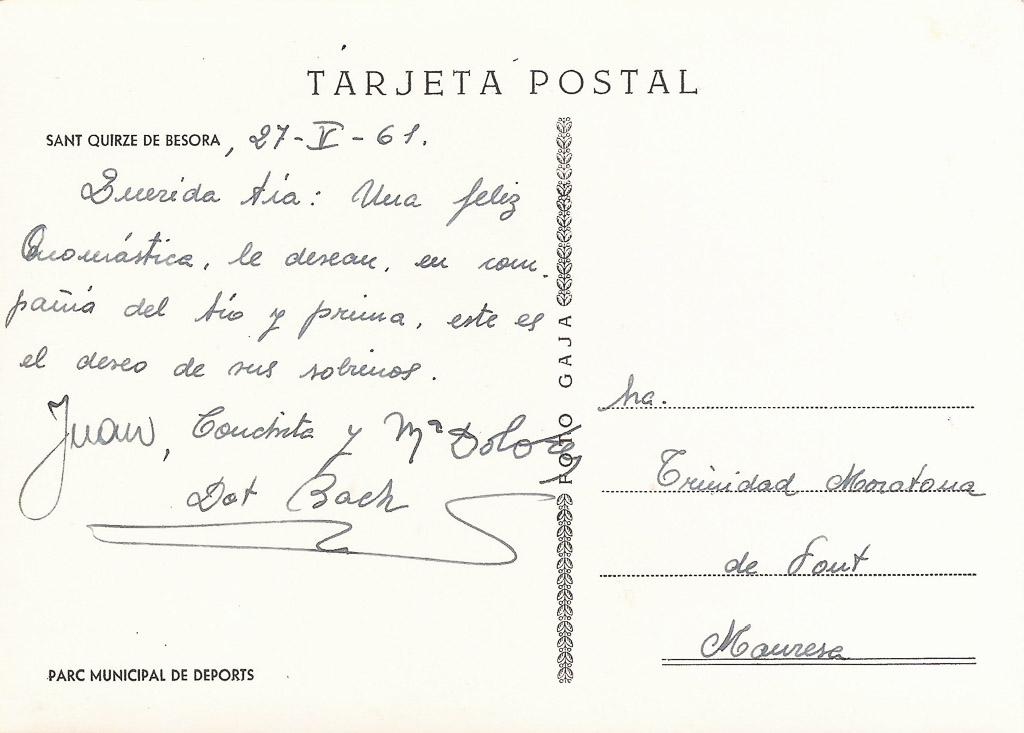 TARJETA POSTAL
SANT QUIRZE DE BESORA, 27-V-61.
Querida tía: Una feliz
Onomástica, le desean, en com-
pañia del tío y prima, este es
el deseo de sus sobrinos.
Juan, Conchita y Mª Dolores
Dot Bach
PARC MUNICIPAL DE DEPORTS
FOTO GAJA
Sra.
Trinidad Moratona
de Font
Manresa